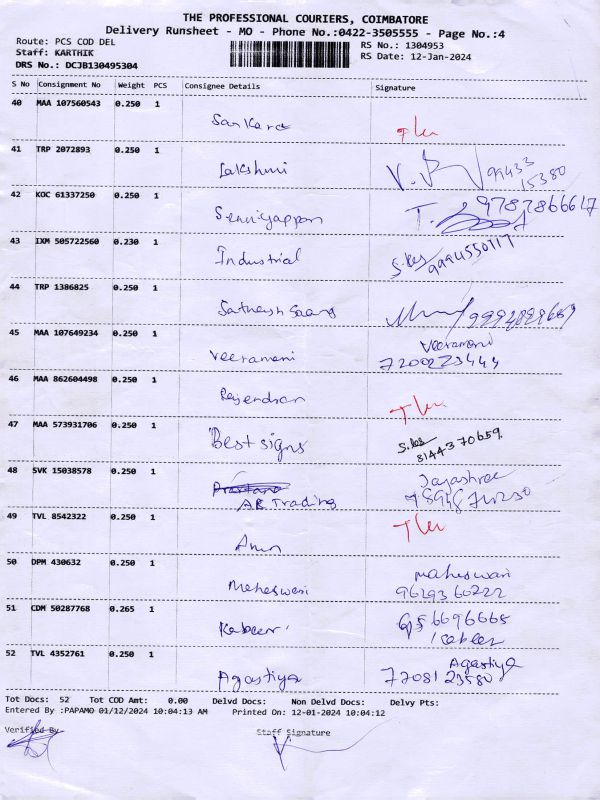 THE PROFESSIONAL COURIERS, COIMBATORE
Delivery Runsheet - MO - Phone No.:0422-3505555 - Page No.:4
Route: PCS COD DEL RS No.: 1304953
Staff: KARTHIK RS Date: 12-Jan-2024
DRS No.: DCJB130495304
S No Consignment No Weight PCS Consignee Details Signature
40 MAA 107560543 0.250 1
Sankara
41 TRP 2072893 0.250 1
Lakshmi 99433
15380
42 KOC 61337250 0.250 1
9787866617
43 IXM 505722560 0.230 1
Industrial 9994550717
44 TRP 1386825 0.250 1
45 MAA 107649234 0.250 1
Veeramani Veeramani
7200223444
46 MAA 862604498 0.250 1
Rajendran
47 MAA 573931706 0.250 1
Best signs
8144370659
48 SVK 15038578 0.250 1
AR Trading Jayashree
49 TVL 8542322 0.250 1
50 DPM 430632 0.250 1
Maheswari maheswari
9629360222
51 CDM 50287768 0.265 1
Kabeer
kabeer
52 TVL 4352761 0.250 1
Agastiya Agastiya
7708123580
Tot Docs: 52 Tot COD Amt: 0.00 Delvd Docs: Non Delvd Docs: Delvy Pts:
Entered By :PAPAMO 01/12/2024 10:04:13 AM Printed On: 12-01-2024 10:04:12
Verified By Staff Signature